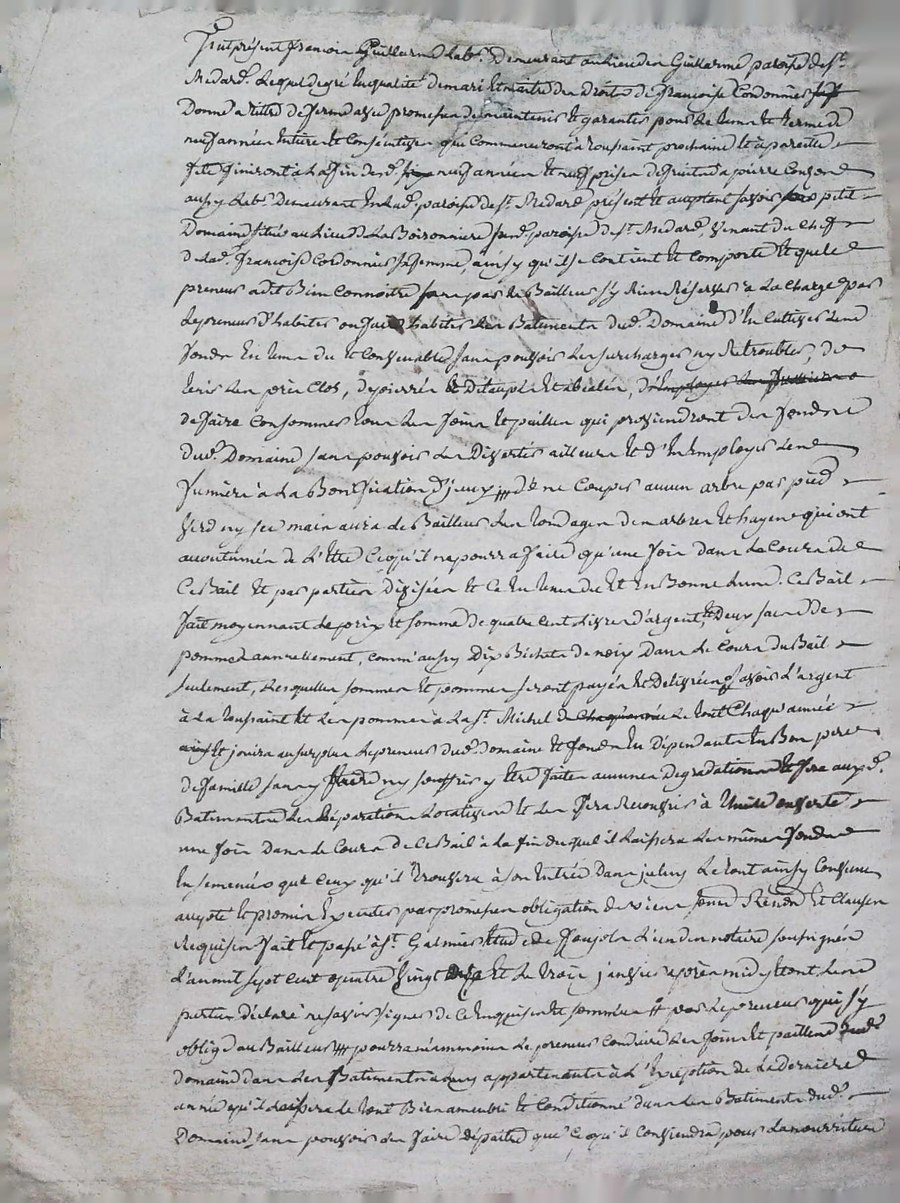 Fut présent françois Guillermé Lab.r Demeurant au lieu des Guillermé paroisse de St.
Medard. Lequel de gré En qualité de mari Et maitre des Droits de françoise Cordonnier
Donne a titre de ferme avec promesse de maintenir Et garantir pour le tems Et terme de
neuf années Entieres Et Consécutives qui Commenceront a toussaint prochaine Et a pareille
fete finiront a la fin desd. neuf années Et neuf prises de fruits a pierre
aussy Lab.r Demeurant En lad. paroisse de St. Medard présent Et acceptant savoir petit
Domaine situé au Lieu de La Boisonniere susd. paroisse de St. Medard, Venant du Chef
de lad. françoise Cordonnier sa femme, ainsy qu'il se contient Et comporte Et que le
preneur a dit Bien Connoitre sans par le Bailleur s'y Rien Réserver a La charge par
Le preneur d'habiter ou faire habiter Les Batiments dud. Domaine d'En Cultiver Les
fonds En tems du Et Convenable sans pouvoir Les surcharger ny Retroubler, de
tenir Les prés Clos, depierrés Et Détaupés Et abialés, de
de faire Consommer tous Les foins Et pailles qui proviendront des fonds
dud. Domaine sans pouvoir Les Divertir ailleurs Et d'En Employer Les
fumiers a La Bonification d'yceux, De ne Couper aucun arbre par pied
Verd ny sec mais aura le Bailleur Les tondages des arbres Et hayes qui ont
accoutumés de L'Etre Ce qu'il ne pourra faire qu'une fois dans Le Cours de
Ce Bail Et par parties Divisées Et Ce En tems du Et En Bonne Lune. Ce Bail
fait moyennant Le prix Et somme de quatre Cent Livres d'argent Et Deux sacs de
pommes annuellement, comm'aussy Dix Bichets de noix Dans Le Cours du Bail
seulement, Lesquelles sommes Et pommes seront payées Et Delivrées savoir L'argent
à La toussaint Et Les pommes à La St. Michel Le tout Chaqu'année
Et jouira au surplus Le preneur dud. Domaine Et fonds En dépendants En Bon pere
de famille sans y faire ny souffrir y Etre faites aucunes degradations Et fera auxd.
Batiments Les Réparations Locatives Et Les fera Recouvrir à
une fois Dans Le Cours de Ce Bail à La fin duquel il Laissera Les mêmes fonds
Ensemencés que Ceux qu'il trouvera à son Entrée Dans Le tout ainsy Convenu
accepté Et promis Executer par promesses obligation de Biens soumis. Renon. Et Clauses
Requises fait Et passé à St. Galmier Etude de L'un des notaires soussignés
L'an mil sept cent quatre Vingt Et Le trois janvier après midy Etont Les
parties déclaré ne savoir signer de Ce Enquises Et sommées # par Le preneur qui s'y
oblige au Bailleur, ## pourra néanmoins Le preneur Conduire Les foins Et pailles dud.
Domaine dans Les Batiments à Luy appartenants à L'Exception de La Derniere
année qu'il Laissera Le tout Bien ameubli Et Conditionné dans Les Batiments dud.
Domaine, sans pouvoir En faire dépaitre que Ce qu'il Conviendra pour La nourriture